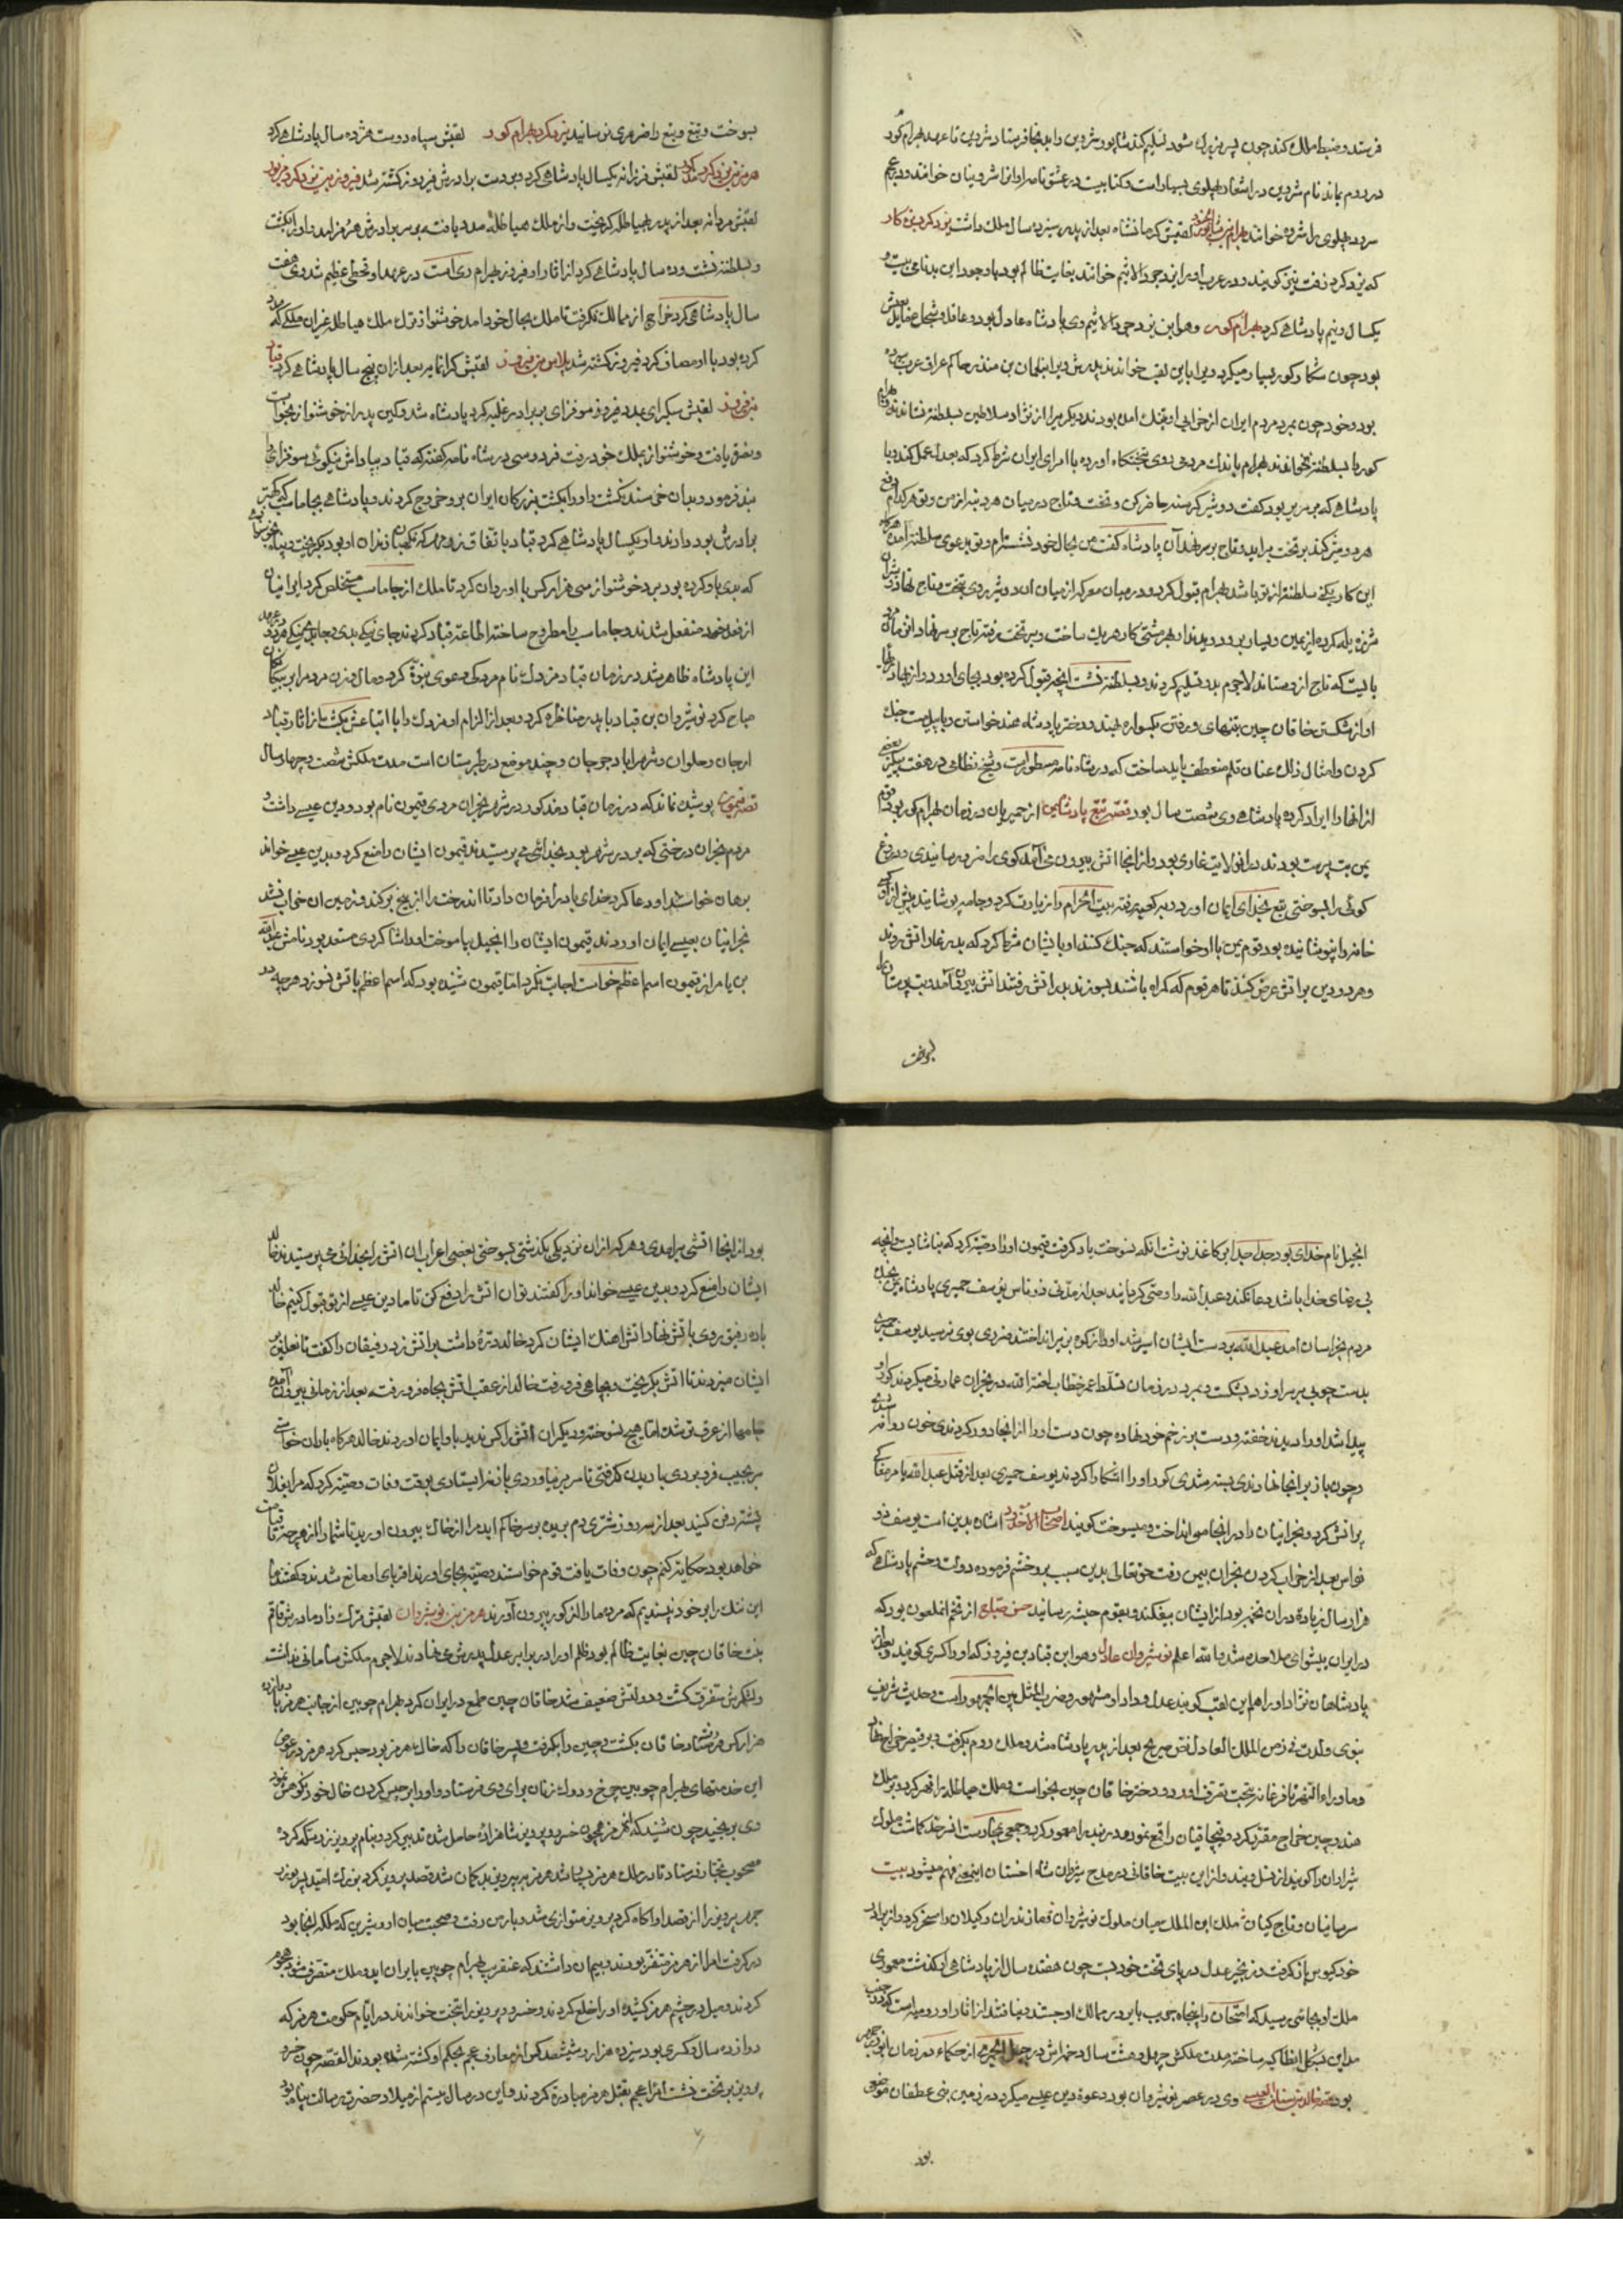 فرستد و ضبط ملک کند چون پسر بزرک شود تسلیم کند شاپور شروین را بدانجا فرستاد شروین تا عهد بهرام کور
در روم بماند نام شروین در اشعار پهلوی بسیار است و کتابیست در عشق نامه او انرا شروینان خوانند و در عجم
سرود پهلوی را شروه خوانند بهرام بن شاپور لقبش کرمانشاه بعد از پدر سیزده سال ملک داشت یزدکرد بزه کار
که یزدکرد زفت نیز کویند و در عرب او را یزدجرد الاثیم خوانند بغایت ظالم بود با وجود این بدنامی بیست و
یکسال و نیم پادشاهی کرد بهرام کور وهو ابن یزدجرد الاثیم وی پادشاه عادل بود و عاقل و شجاع
بود چون شکار کور بسیار میکرد ویرا باین لقب خواندند پدرش ویرا بنعمان بن منذر حاکم عراق عرب سپرده
بود و خود چون بمرد مردم ایران از خرابی او بتنک امده بودند دیکریرا از نژاد سلاطین بسلطنة نشاندند بهرام
کور را بسلطنة نخواندند بهرام باندک مردمی روی بتختکاه اورده با امرای ایران شرط کرد که بعدل عمل کند
پادشاهی که بر سریر بود کفت دو شیر کرسنه حاضر کن و تخت و تاج در میان هر دو بنه از من و تو هر کدام دفع
هر دو شیر کند بر تخت براید و تاج بر سر نهد آن پادشاه کفت من بحال خود نشسته‌ام و تو بدعوی سلطنة آمده
این کار بکن سلطنة از تو باشد بهرام قبول کرد و در میان معرکه از میان ان دو شیر روی بتخت و تاج نهاد
شرزه یله کرده از یمین و یسار بدو دویدند او بهر مشتی کار هر یک ساخت و بر تخت رفته تاج بر سر نهاد
بایست که تاج از وستاند لاجرم بدو تسلیم کردند و بسلطنة نشست انچه قبول کرده بود بجای اورد و از
او از شکستن خاقان چین بتنهای و رفتن یکسواره بهند و دختر پادشاه هند خواستن و با پیل مست جنک
کردن و امثال ذلک عنان قلم منعطف باید ساخت که در شاه نامه مسطورست و شیخ نظامی در هفت پیکر بعضی
از انها را ایراد کرده پادشاهی وی شصت سال بود قصه تبع پادشاه یمن از حمیریان در زمان بهرام کور بود قوم
یمن بت پرست بودند در ان ولایت غاری بود و از انجا اتش بیرون می آمد کوی را ضرر نرسانیدی و دروغ
کوئی را بسوختی تبع بخدای ایمان اورد و در کعبه رفته بیت الحرام را زیارت کرد و جامه پوشانید پیش از او کسی
خانه را نپوشانیده بود قوم یمن با او خواستند که جنک کنند او با ایشان شرط کرد که بدر غار اتش روند
و هر دو دین بر اتش عرض کنند تا هر قوم که کمراه باشند بسوزند بدر اتش رفتند اتش بیرون آمد و بت پرستان را
بسوخت
بسوخت و تبع و تبع را ضرری نرسانید یزدکرد بهرام کور لقبش سپاه دوست هژده سال پادشاهی کرد
هرمز بن یزدکرد لقبش فرزانه یکسال پادشاهی کرد و بر دست برادرش فیروز کشته شد فیروز بن یزدکرد
لقبش مردانه بعد از پدر بهیاطله کریخت و از ملک هیاطله مدد یافته بر سر برادرش هرمز امد و او را بکشت
و بسلطنة نشست و ده سال پادشاهی کرد از اثار او فیروز بهرام ری است در عهد او قحطی عظیم شد وی هفت
سال پادشاهی کرد خراج از ممالک نکرفت تا ملک بحال خود امد خوشنواز ترک ملک هیاطله
کرده بود با او مصاف کرد فیروز کشته شد بلاس بن فیروز لقبش کرانمایه بعد از ان پنج سال پادشاهی کرد قباد
بن فیروز لقبش نیکرای بمدد سوفزای بر برادر غلبه کرد پادشاه شد و کین پدر از خوشنواز بخواست
و ظفر یافت و خوشنواز بملک خود رفت فردوسی در شاه نامه کفته که قباد بپاداش نیکوئی سوفزای
برادرش بود دادند و او یکسال پادشاهی کرد قباد باتفاق زرمهر که نکهبان زندان او بود بکریخت
که بدی یاد کرده بود برد خوشنواز سی هزار کس با او روان کرد تا ملک از جاماسب مستخلص کرد ایرانیان
از فعل خود منفعل شدند و جاماسب را مطروح ساخته اطاعة قباد کردند
این پادشاه ظاهر شد در زمان قباد مزدک نام مردکی دعوی نبوة کرد و مال و زن مردم را بر یکدیکر
مباح کرد نوشیروان بن قباد با پدر مناظره کرد و بعد از الزام او مزدک را با اتباعش بکشت از اثار قباد
ارجان و حلوان و شهراباد جرجان و چند موضع در طبرستان است مدت ملکش شصت و چهار سال
قصه قیمون پوشیده نماند که در زمان قباد مذکور در شهر نجران مردی قیمون نام بود و دین عیسی داشت
مردم نجران درختی که بر در شهر بود بخدائی می پرستیدند قیمون ایشان را منع کرد و بدین عیسی خواند
برهان خواستند او دعا کرد خدای باد را فرمان داد تا اندرخت را از بیخ برکند و زمین ان خراب شد
نجرانیان بعیسی ایمان اوردند قیمون ایشان را انجیل بیاموخت او را شاکردی مستعد بود نامش عبدالله
بن یامر از قیمون اسم اعظم خواست اجابت نکرد اما قیمون شنیده بود که اسم اعظم باتش نسوزد هر چه در
انجیل نام خدای بود جدا جدا بر کاغذ نوشت انکه نسوخت یاد کرفت قیمون او را وصیة کرد که
بی رضای خدا باشد دعا نکند و عبدالله را وصی کردانید بعد از مدتی ذونواس یوسف حمیری پادشاه یمن
مردم بخراسان امد عبدالله بر دست ایشان اسیر شد او را از کوه بزیر انداختند ضرری بوی نرسید یوسف حمیری
بدست چوبی بر سر او زد بشکست و بمرد در زمان تسلط عمر خطاب لعنه الله در نجران عمارتی میکردند کور او
پیدا شد او را دیدند خفته و دست بر زخم خود نهاده چون دست او را از انجا دور کردندی خون روانه شدی
و چون باز بر انجا نهادندی بسته شدی کور او را اشکارا کردند یوسف حمیری بعد از قتل عبدالله
پر اتش کرد و نجرانیان را در انجا می انداخت و میسوخت کویند اصحاب الاخدود اشاره بدین است یوسف ذو
نواس بعد از خراب کردن نجران بیمن رفت حق تعالی بدین سبب برو خشم فرموده دولت و حشم پادشاهی که
هزار سال زیادة دران تخمه بود از ایشان بیفکند و بقوم حبشه رسانید حسن صباح از تخم انملعون بود که
در ایران پیشوای ملاحده شد والله اعلم نوشیروان عادل وهو ابن قباد بن فیروز که او را کسری کویند و بعد از
پادشاهان نژاد او را هم این لقب کویند عدل و داد او مشهور و ضرب المثل بین الجمهور است و حدیث شریف
نبوی ولدت فی زمن الملک العادل نص صریح بعد از پدر پادشاه شد و ملک روم بکرفت و بر قیصر خراج نهاد
و ماوراء النهر تا فرغانه بتحت تصرف اورد و دختر خاقان چین بخواست و ملک هیاطله را قهر کرد و بر ملک
هند و چین خراج مقرر کرد و قبچاقیان را قمع نمود و دربند را معمور کرد و جمعی بمحاربت انسرحد کماشت ملوک
شیروان را کویند از نسل ویند و از این بیت خاقانی در مدح شیروان شاه اخستان اینمعنی فهم میشود بیت
خود کیوس باز کرفت و زنجیر عدل در پای تخت خود ببست چون هفده سال از پادشاهی او بکذشت معموری
ملک او بجائی رسید که
مداین بشکل انطاکیه ساخته مدت ملکش چهل و هشت سال و خمراش در جبل الحرمی از حکماء در زمان او بوزرجمهر
بود قصه خالد بن سنان العبسی وی در عصر نوشیروان بود دعوة دین عیسی میکرد در زمین بنی غطفان موضعی
بود
بود از انجا اتشی برامدی و هر که ازان نزدیکی بکذشتی بسوختی بعضی اعراب ان اتش را بخدائی می پرستیدند خالد
ایشان را منع کرد و بدین عیسی خواند او را کفتند تو ان اتش را دفع کن تا ما دین عیسی از تو قبول کنیم خالد
با ده رفیق روی باتش نهاد اتش اهنک ایشان کرد خالد دره داشت بر اتش زد رفیقان را کفت تا نعلین بر
ایشان میزدند تا اتش بکریخت و بچاهی فرو رفت خالد از عقب اتش بچاه فرو رفت بعد از زمانی بیرون آمد
جامها از عرق تر شده اما هیچ نسوخته و دیکر ان اتش را کس ندید باو ایمان اوردند خالد هر کاه باران خواستی
سر بجیب فرو بردی باریدن کرفتی تا سر بر نیاوردی باز نه ایستادی بوقت وفات وصیة کرد که مرا بفلان
پشته دفن کنید بعد از سه روز شتری دم بریده بر سر خاکم اید مرا از خاک بیرون اورید تا شما را از هر چه تا قیامت
خواهد بود حکایة کنم چون وفات یافت قوم خواستند وصیة بجای اورند اقربای او مانع شدند و کفتند ما
این ننک را بر خود نپسندیم که مرده ما را از کور بیرون آورند هرمز بن نوشیروان لقبش ترک زاد مادرش قاقم
بنت خاقان چین بغایت ظالم بود ظلم او را در برابر عدل پدرش می نهادند لاجرم ملکش سامانی نداشت
و لشکرش متفرق کشت و دولتش ضعیف شد خاقان چین طمع در ایران کرد بهرام چوبین از جانب هرمز با دوازده
هزار کس فرستاد خاقان بکشت و چین را بکرفت و پسر خاقان را که خال هرمز بود حبس کرد هرمز در عوض
این خدمتهای بهرام چوبین چرخ و دوک زنان برای وی فرستاد و او را بر حبس کردن خال خود نکوهش نمود
وی برنجید چون شنید که هرمز همچون خسرو پرویز شاهزاده حاصل شده تدبیر کرد و بنام پرویز زد سکه کرده
مصحوب تجار فرستاد تا در ملک هرمز بپاشد هرمز بر پرویز بدکمان شد قصد پرویز کرد
پرویز را از قصد او اکاه کرد پرویز متواری شد و بارمن رفت و صحبت میان او و شیرین که ملکه انجا بود
در کرفت امرا از هرمز متنفر بودند و بیم ان داشتند که عنقریب بهرام چوبین بایران اید و ملک متصرف شود هجوم
کردند و میل در چشم هرمز کشیده او را خلع کردند و خسرو پرویز را بتخت خواندند در ایام حکومت هرمز که
دوازده سال و کسری بود سیزده هزار و ششصد کس از معارف عجم بحکم او کشته شده بودند القصه چون خسرو
پرویز بر تخت نشست امراء عجم بقتل هرمز مبادرة کردند و این در سال بیستم از میلاد حضرت رسالت پناه بود